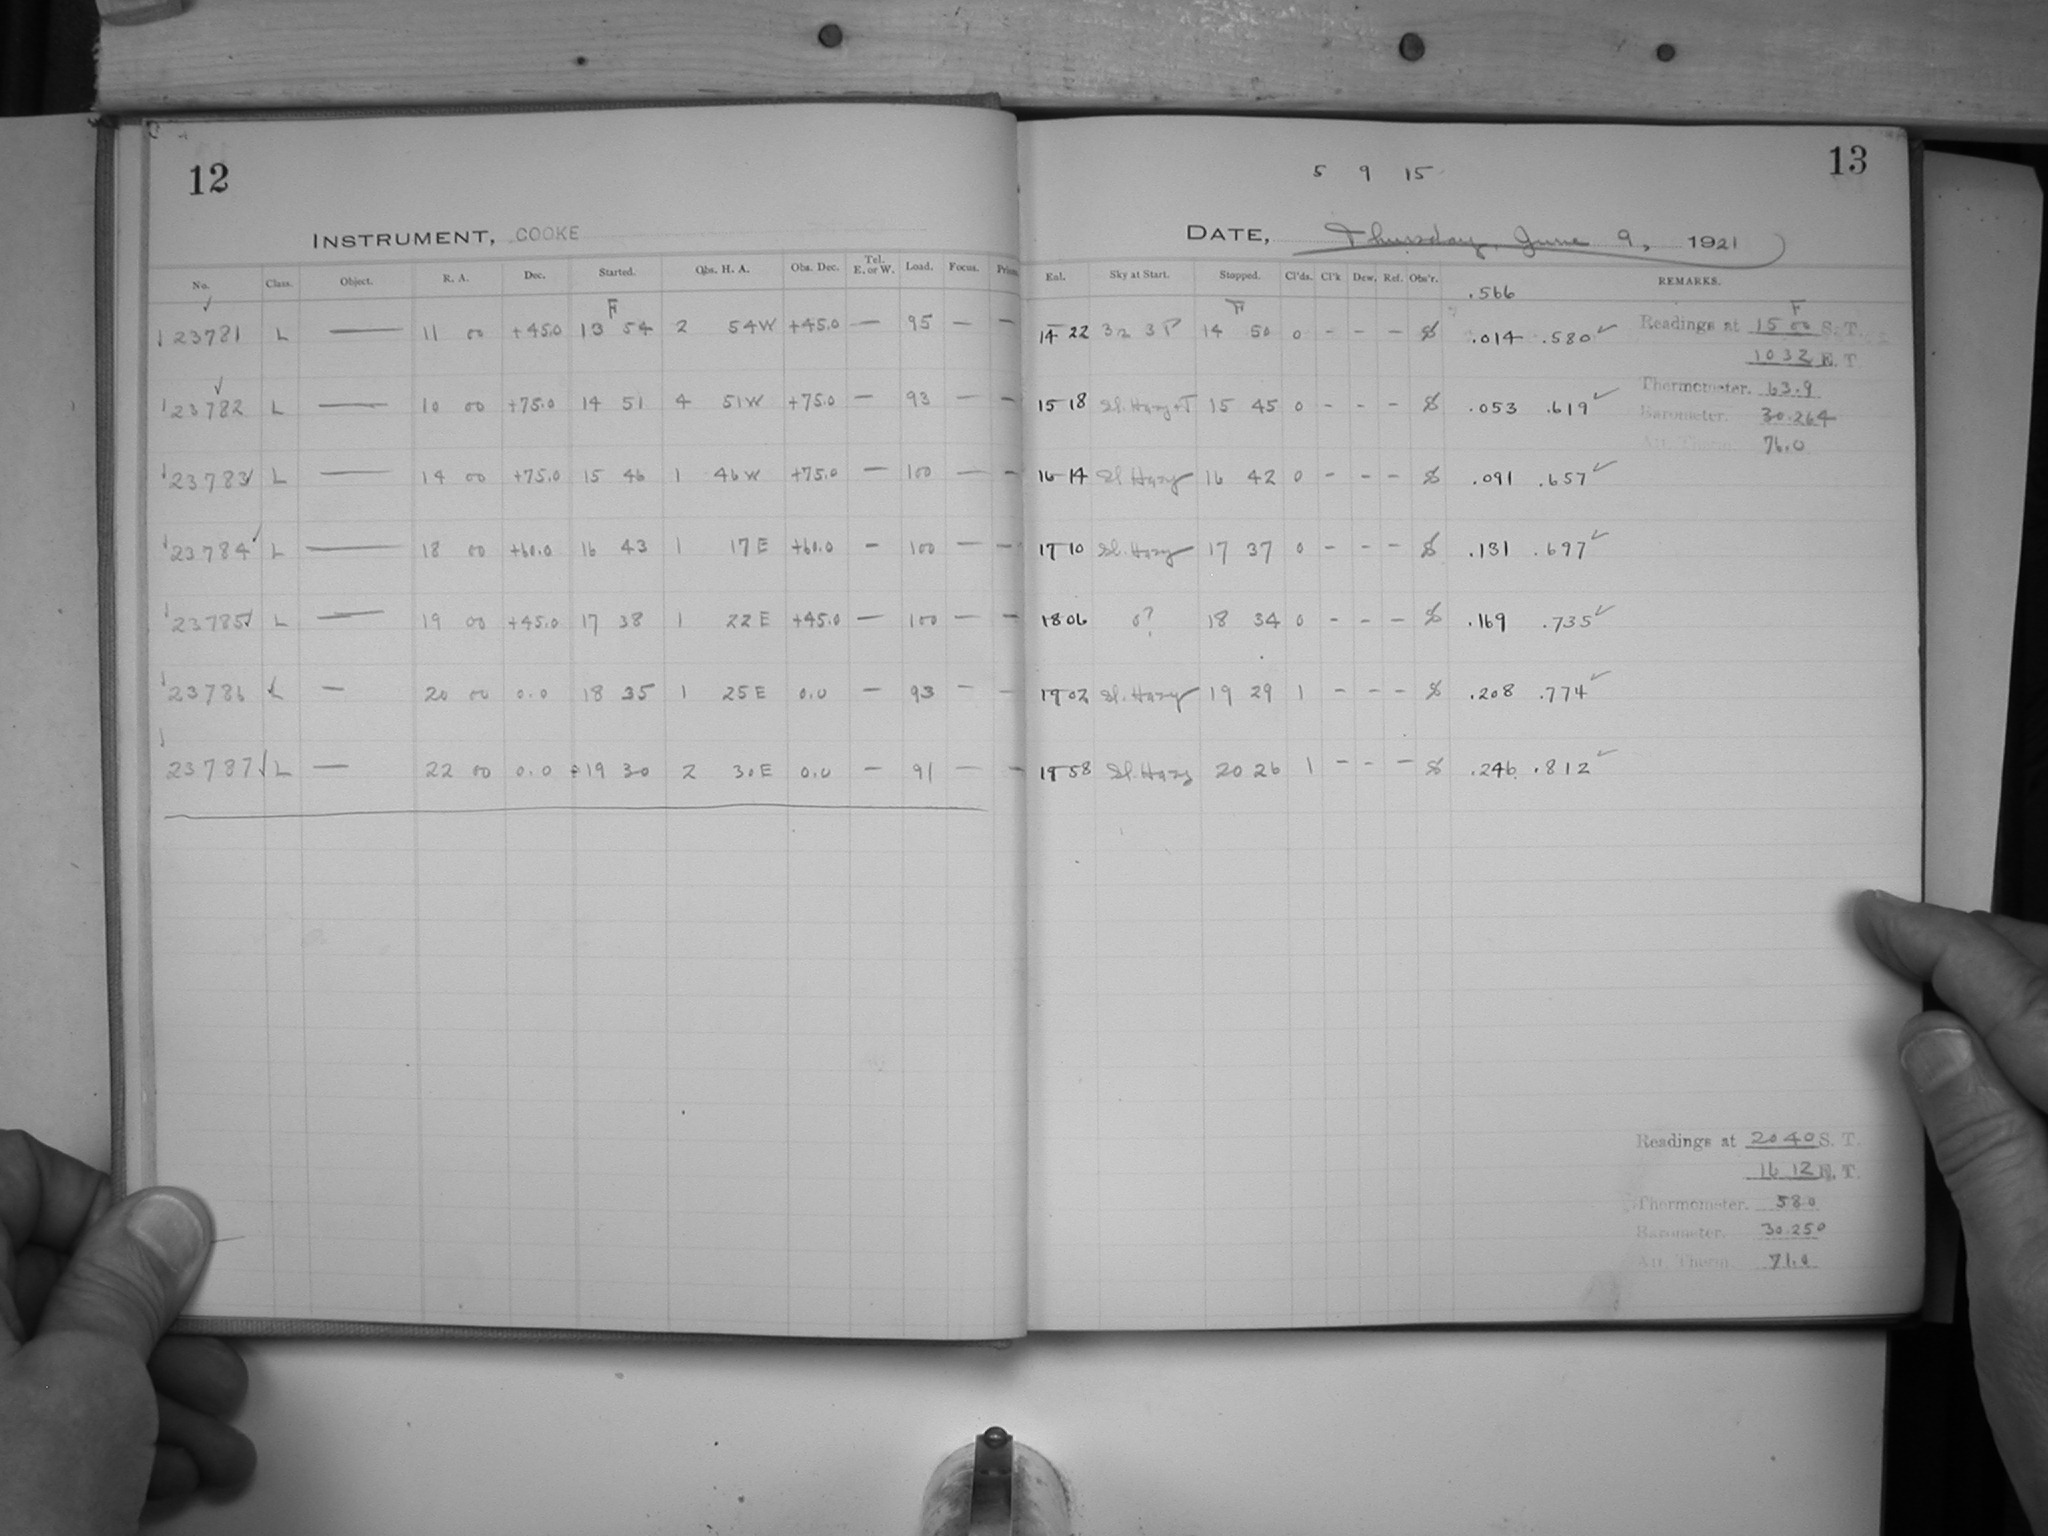 12
INSTRUMENT, COOKE
No. Class. Object. R. A. Dec. Started. Obs. H. A. Obs. Dec. Tel. E. or W. Load. Focus. Prism
F
123781 L — 11 00 +45.0 13 54 2 54W +45.0 — 95 — —
23782 L — 10 00 +75.0 14 51 4 51W +75.0 — 93 — —
23783 L — 14 00 +75.0 15 46 1 46W +75.0 — 100 — —
23784 L — 18 00 +60.0 16 43 1 17E +60.0 — 100 — —
23785 L — 19 00 +45.0 17 38 1 22E +45.0 — 100 — —
23786 L — 20 00 0.0 18 35 1 25E 0.0 — 93 — —
23787 L — 22 00 0.0 19 30 2 30E 0.0 — 91 — —
13
5 9 15
DATE, Thursday, June 9, 1921
Eql. Sky at Start. Stopped. Cl'ds. Cl'k Dew. Ref. Obs'r. REMARKS.
.566
F
14 22 3P 14 50 0 - - - .014 .580 ✓
15 18 Sl. Hazy+T 15 45 0 - - - .053 .619 ✓
16 14 Sl Hazy 16 42 0 - - - .091 .657 ✓
17 10 Sl. Hazy 17 37 0 - - - .131 .697 ✓
18 06 0? 18 34 0 - - - .169 .735 ✓
19 02 Sl. Hazy 19 29 1 - - - .208 .774 ✓
19 58 Sl. Hazy 20 26 1 - - - .246 .812 ✓
F
Readings at 15 00 S. T.
10 32 E. T.
Thermometer. 63.9
Barometer. 30.264
Att. Therm. 76.0
Readings at 20 40 S. T.
16 12 E. T.
Thermometer. 580
Barometer. 30.250
Att. Therm. 71.0